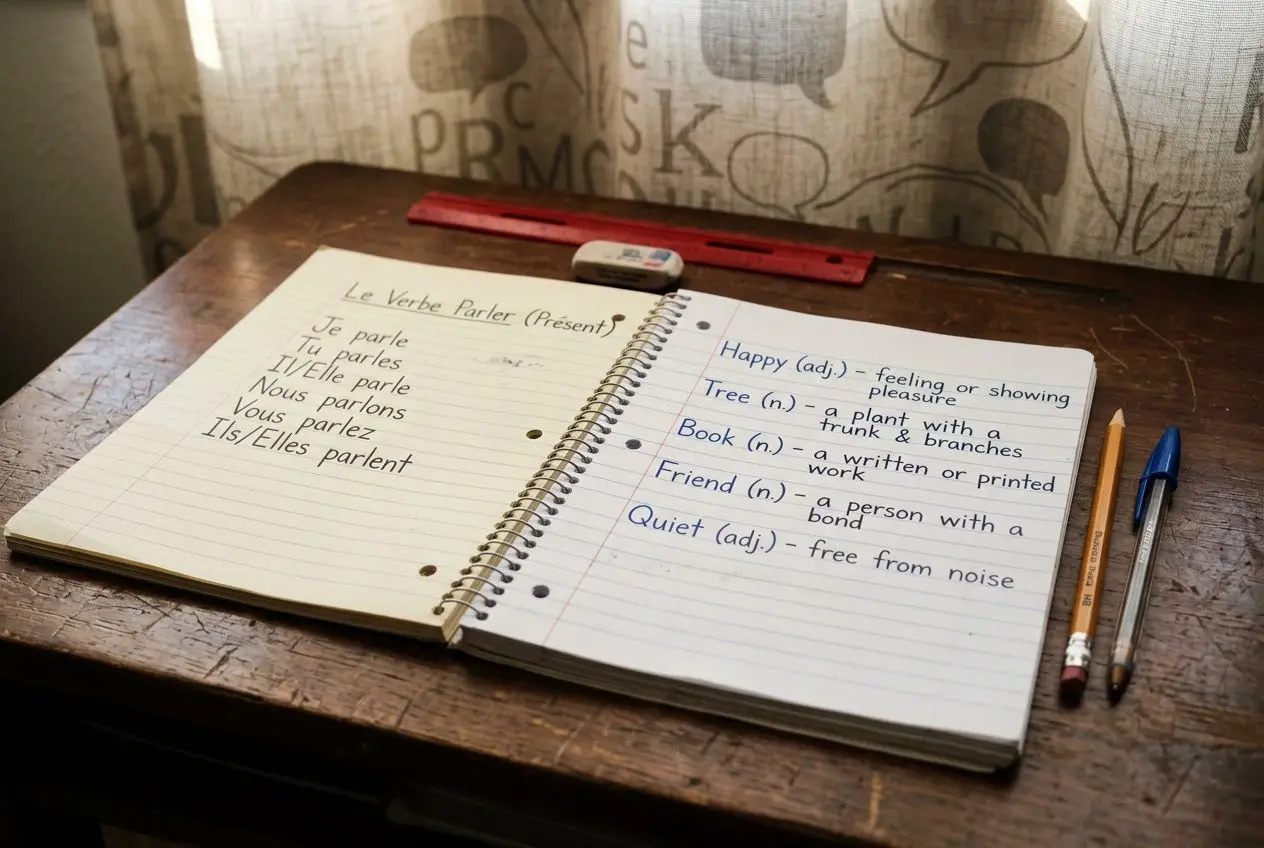 Le Verbe Parler (Présent)
Je parle
Tu parles
Il/Elle parle
Nous parlons
Vous parlez
Ils/Elles parlent
Happy (adj.) – feeling or showing
pleasure
Tree (n.) – a plant with a
trunk & branches
Book (n.) – a written or printed
work
Friend (n.) – a person with a
bond
Quiet (adj.) – free from noise